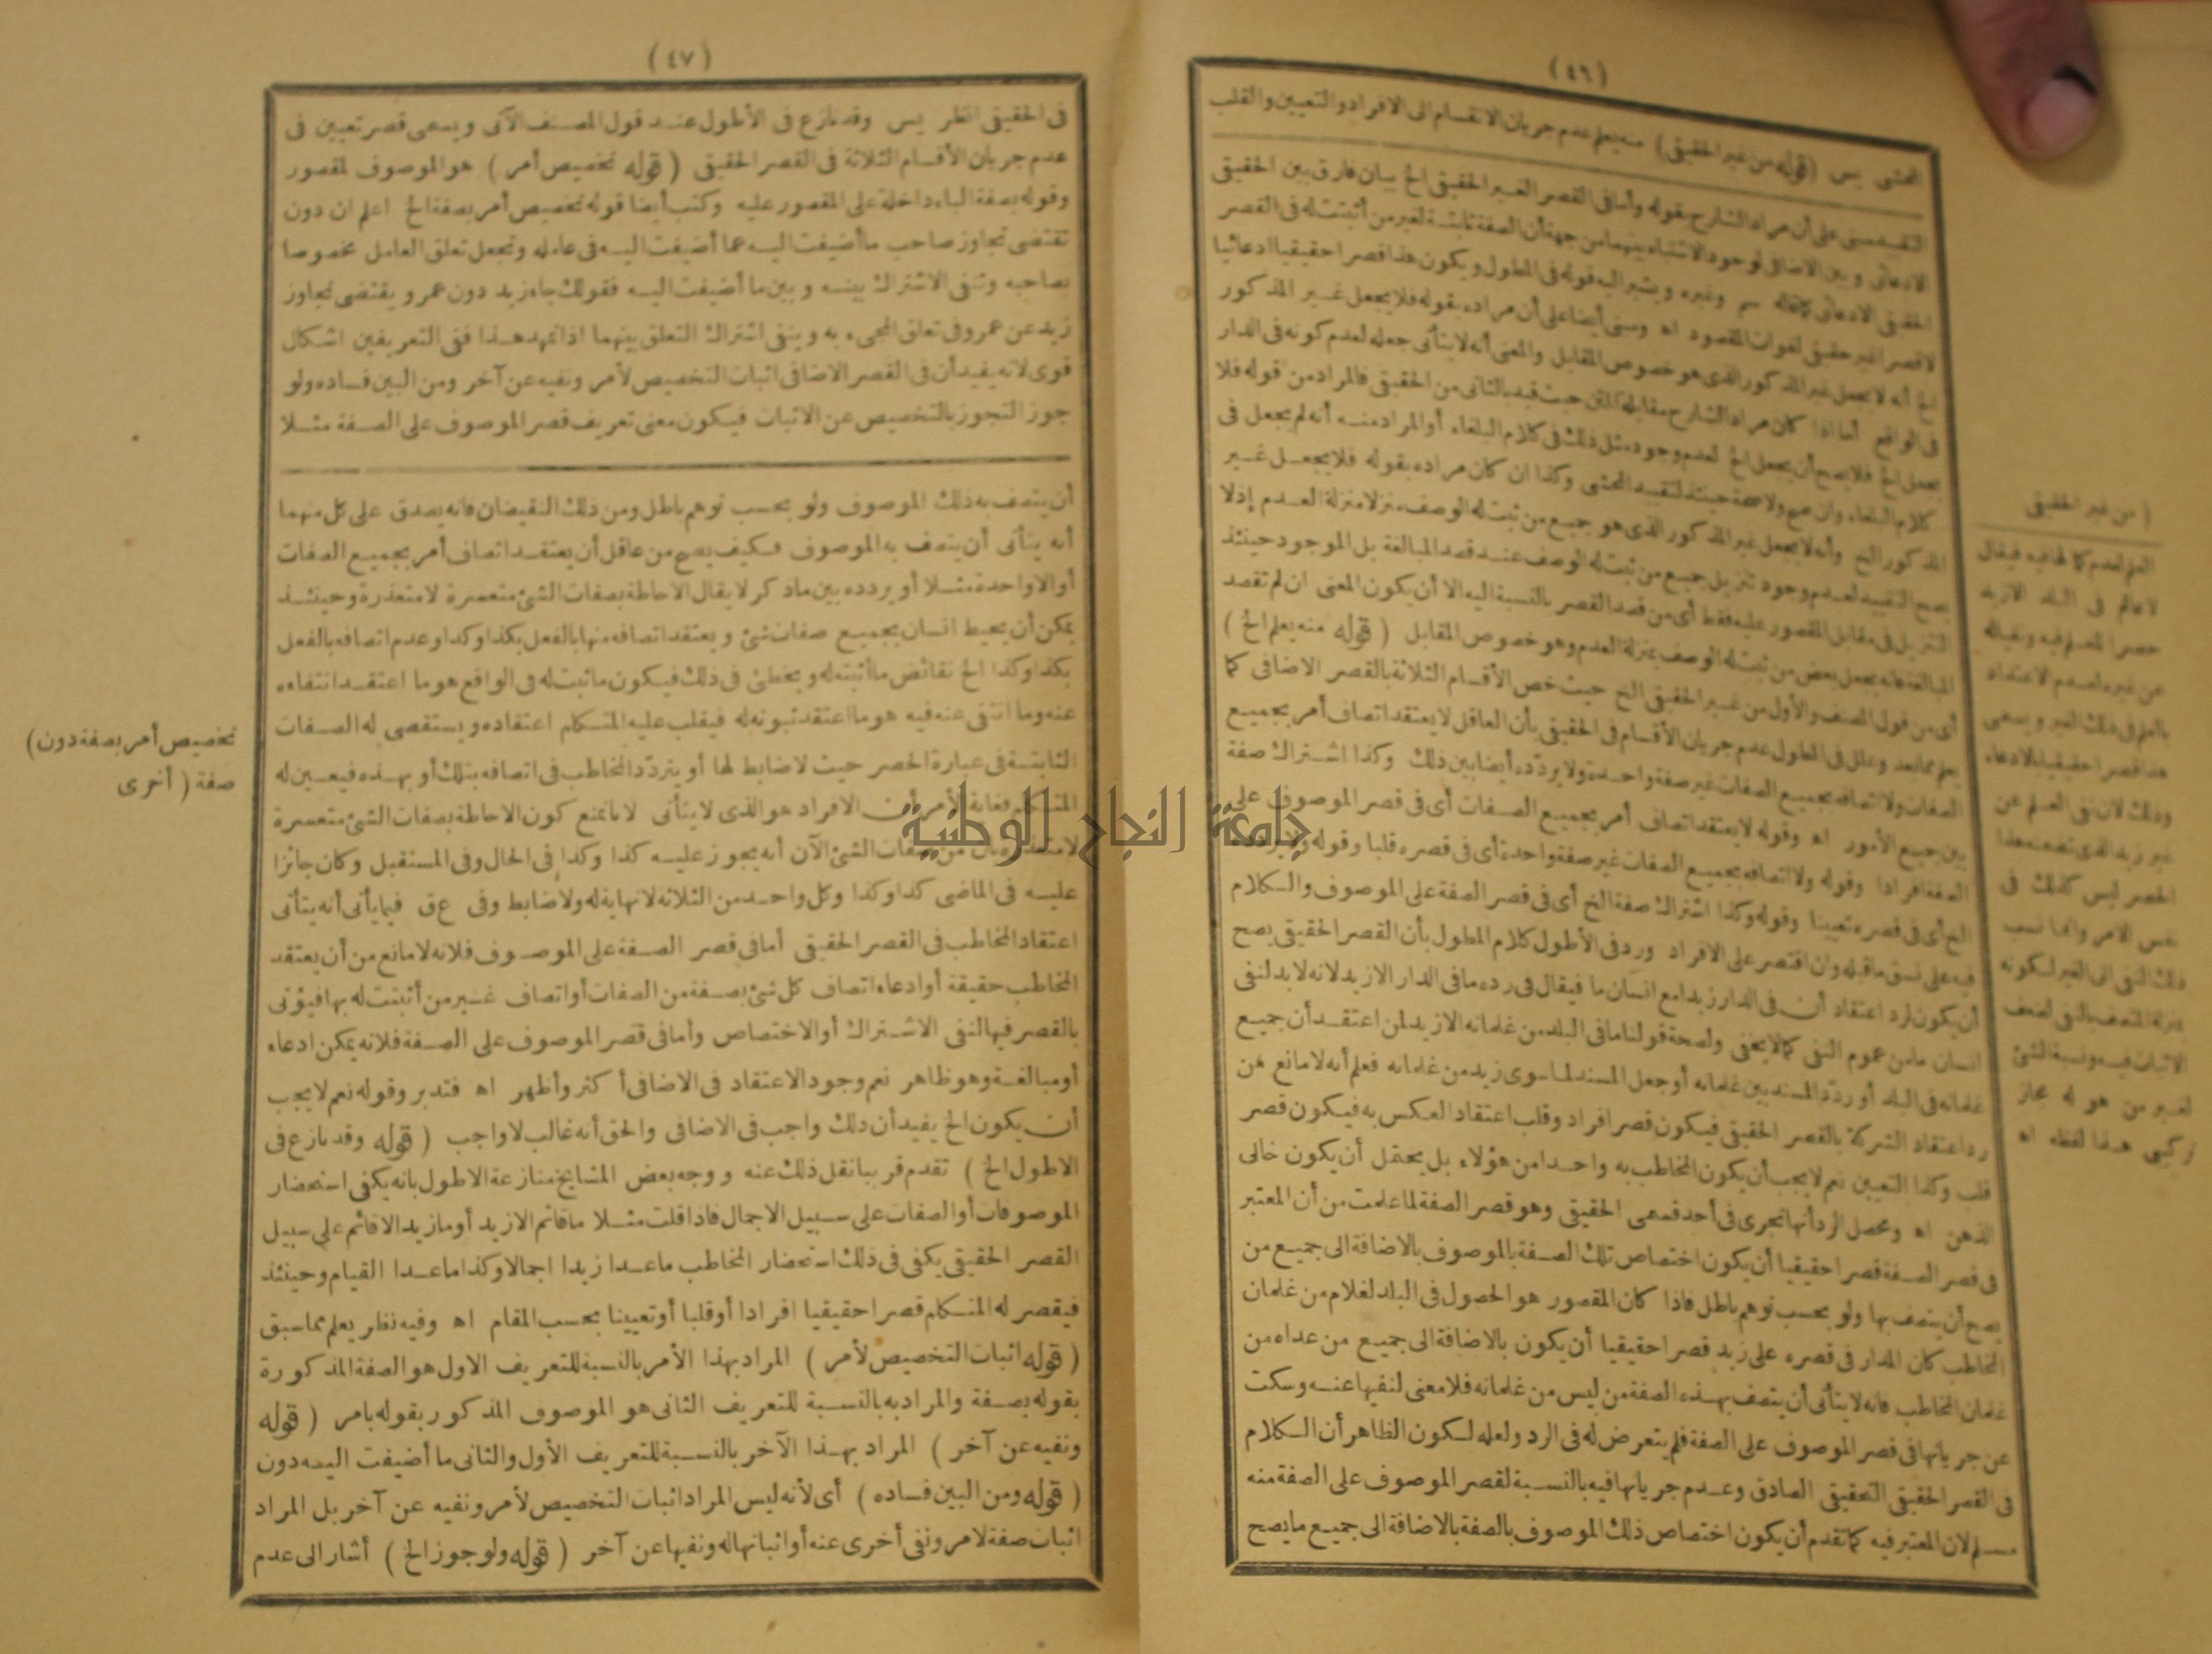 (٤٦)
المحشى يس (قوله من غير الحقيقى) منه يعلم عدم جريان الانقسام الى الافراد والتعيين والقلب
التقييد مبنى على أن مراد الشارح بقوله وأما فى القصر الغير الحقيقى الخ بيان فارق بين الحقيقى
الادعائى وبين الاضافى لوجود الاشتباه بينهما من جهة أن الصفة ثابتة لغير من أثبتت له فى القصر
الحقيقى الادعائى كما نقله سم وغيره ويشير اليه قوله فى المطول ويكون هذا قصرا حقيقيا ادعائيا
لا قصرا غير حقيقى لفوات المقصود اه ومبنى أيضا على أن مراده بقوله فلا يجعل غير المذكور
الخ أنه لا يجعل غير المذكور الذى هو خصوص المقابل والمعنى أنه لا يتأتى جعله لعدم كونه فى الدار
فى الواقع أما اذا كان مراد الشارح مقابلة المتن حيث قيد بالثانى من الحقيقى فالمراد من قوله فلا
يجعل الخ فلا يصح أن يجعل الخ لعدم وجود مثل ذلك فى كلام البلغاء أو المراد منه أنه لم يجعل فى
كلام البلغاء وان صح ولا صحة حينئذ لتقييد المحشى وكذا ان كان مراده بقوله فلا يجعل غير
المذكور الخ وأنه لا يجعل غير المذكور الذى هو جميع من ثبت له الوصف منزلا منزلة العدم إذ لا
يصح التقييد لعدم وجود تنزيل جميع من ثبت له الوصف عند قصد المبالغة بل الموجود حينئذ
التنزيل فى مقابل المقصور عليه فقط أى من قصد القصر بالنسبة اليه الا أن يكون المعنى ان لم تقصد
المبالغة فانه يجعل بعض من ثبت له الوصف بمنزلة العدم وهو خصوص المقابل (قوله منه يعلم الخ)
أى من قول المصنف والأول من غير الحقيقى الخ حيث خص الأقسام الثلاثة بالقصر الاضافى كما
يعلم مما بعد وعلل فى المطول عدم جريان الأقسام فى الحقيقى بأن العاقل لا يعتقد اتصاف أمر بجميع
الصفات ولا اتصافه بجميع الصفات غير صفة واحدة ولا يردّده أيضا بين ذلك وكذا اشتراك صفة
بين جميع الأمور اه وقوله لا يعتقد اتصاف أمر بجميع الصفات أى فى قصر الموصوف على
الصفة افرادا وقوله ولا اتصافه بجميع الصفات غير صفة واحدة أى فى قصره قلبا وقوله ولا يردده
الخ أى فى قصره تعيينا وقوله وكذا اشتراك صفة الخ أى فى قصر الصفة على الموصوف والكلام
فيه على نسق ما قبله وان اقتصر على الافراد ورد فى الأطول كلام المطول بأن القصر الحقيقى يصح
أن يكون لرد اعتقاد أن فى الدار زيدا مع انسان ما فيقال فى رده ما فى الدار الا زيد لانه لا بد لنفى
انسان ما من عموم النفى كما لا يخفى ولصحة قولنا ما فى البلد من غلمانه الا زيد لمن اعتقد أن جميع
غلمانه فى البلد أو ردّد المسند بين غلمانه أو جعل المسند لما سوى زيد من غلمانه فعلم أنه لا مانع من
رد اعتقاد الشركة بالقصر الحقيقى فيكون قصر افراد وقلب اعتقاد العكس به فيكون قصر
قلب وكذا التعيين نعم لا يجب أن يكون المخاطب به واحدا من هؤلاء بل يحتمل أن يكون خالى
الذهن اه ومحصل الرد أنها تجرى فى أحد قسمى الحقيقى وهو قصر الصفة لما علمت من أن المعتبر
فى قصر الصفة قصرا حقيقيا أن يكون اختصاص تلك الصفة بالموصوف بالاضافة الى جميع من
يصح أن يتصف بها ولو بحسب توهم باطل فاذا كان المقصور هو الحصول فى البلد لغلام من غلمان
المخاطب كان المدار فى قصره على زيد قصرا حقيقيا أن يكون بالاضافة الى جميع من عداه من
غلمان المخاطب فانه لا يتأتى أن يتصف بهذه الصفة من ليس من غلمانه فلا معنى لنفيها عنه وسكت
عن جريانها فى قصر الموصوف على الصفة فلم يتعرض له فى الرد ولعله لكون الظاهر أن الكلام
فى القصر الحقيقى التحقيقى الصادق وعدم جريانها فيه بالنسبة لقصر الموصوف على الصفة منه
مسلم لان المعتبر فيه كما تقدم أن يكون اختصاص ذلك الموصوف بالصفة بالاضافة الى جميع ما يصح
(من غير الحقيقى
العلم لعدم كمالها فيه فيقال
لا عالم فى البلد الا زيد
حصرا للعلم فيه ونفيا له
عن غيره لعدم الاعتداد
بالعلم فى ذلك الغير ويسمى
هذا قصرا حقيقيا بالادعاء
وذلك لان نفى العلم عن
غير زيد الذى تضمنه هذا
الحصر ليس كذلك فى
نفس الامر وانما نسب
ذلك النفى الى الغير لكونه
بمنزلة المتصف بالنفى لضعف
الاثبات فيه ونسبة الشئ
لغير من هو له مجاز
تركيبى هذا لفظه اه
(٤٧)
فى الحقيقى انظر يس وقد نازع فى الأطول عند قول المصنف الآتى ويسمى قصر تعيين فى
عدم جريان الأقسام الثلاثة فى القصر الحقيقى (قوله تخصيص أمر) هو الموصوف لمقصور
وقوله بصفة الباء داخلة على المقصور عليه وكتب أيضا قوله تخصيص أمر بصفة الخ اعلم ان دون
تقتضى تجاوز صاحب ما أضيفت اليه عما أضيفت اليه فى عامله وتجعل تعلق العامل مخصوصا
بصاحبه وتنفى الاشتراك بينه وبين ما أضيفت اليه فقولك جاء زيد دون عمرو يقتضى تجاوز
زيد عن عمرو فى تعلق المجىء به وينفى اشتراك التعلق بينهما اذا تمهد هذا ففى التعريفين اشكال
قوى لانه يفيد أن فى القصر الاضافى اثبات التخصيص لأمر ونفيه عن آخر ومن البين فساده ولو
جوز التجوز بالتخصيص عن الاثبات فيكون معنى تعريف قصر الموصوف على الصفة مثلا
أن يتصف به ذلك الموصوف ولو بحسب توهم باطل ومن ذلك النقيضان فانه يصدق على كل منهما
أنه يتأتى أن يتصف به الموصوف فكيف يصح من عاقل أن يعتقد اتصاف أمر بجميع الصفات
أو الا واحدة مثلا أو يردده بين ما ذكر لا يقال الاحاطة بصفات الشئ متعسرة لا متعذرة وحينئذ
يمكن أن يحيط انسان بجميع صفات شئ ويعتقد اتصافه منها بالفعل بكذا وكذا وعدم اتصافه بالفعل
بكذا وكذا الخ نقائض ما أثبته له ويخطئ فى ذلك فيكون ما ثبت له فى الواقع هو ما اعتقد انتفاءه
عنه وما انتفى عنه فيه هو ما اعتقد ثبوته له فيقلب عليه المتكلم اعتقاده ويستقصى له الصفات
الثابتة فى عبارة الحصر حيث لا ضابط لها أو يتردّد المخاطب فى اتصافه بتلك أو بهذه فيعين له
المتكلم فغاية الأمر أن الافراد هو الذى لا يتأتى لانا نمنع كون الاحاطة بصفات الشئ متعسرة
لا متعذرة بأن من صفات الشئ الآن أنه يجوز عليه كذا وكذا فى الحال وفى المستقبل وكان جائزا
عليه فى الماضى كذا وكذا وكل واحد من الثلاثة لا نهاية له ولا ضابط وفى ع ق فيما يأتى أنه يتأتى
اعتقاد المخاطب فى القصر الحقيقى أما فى قصر الصفة على الموصوف فلانه لا مانع من أن يعتقد
المخاطب حقيقة أو ادعاء اتصاف كل شئ بصفة من الصفات أو اتصاف غير من أثبتت له بها فيؤتى
بالقصر فيها لنفى الاشتراك أو الاختصاص وأما فى قصر الموصوف على الصفة فلانه يمكن ادعاء
أو مبالغة وهو ظاهر نعم وجود الاعتقاد فى الاضافى أكثر وأظهر اه فتدبر وقوله نعم لا يجب
أن يكون الخ يفيد أن ذلك واجب فى الاضافى والحق أنه غالب لا واجب (قوله وقد نازع فى
الاطول الخ) تقدم قريبا نقل ذلك عنه ووجه بعض المشايخ منازعة الاطول بانه يكفى استحضار
الموصوفات أو الصفات على سبيل الاجمال فاذا قلت مثلا ما قائم الا زيد أو ما زيد الا قائم على سبيل
القصر الحقيقى يكفى فى ذلك استحضار المخاطب ما عدا زيدا اجمالا وكذا ما عدا القيام وحينئذ
فيقصر له المتكلم قصرا حقيقيا افرادا أو قلبا أو تعيينا بحسب المقام اه وفيه نظر يعلم مما سبق
(قوله اثبات التخصيص لأمر) المراد بهذا الأمر بالنسبة للتعريف الاول هو الصفة المذكورة
بقوله بصفة والمراد به بالنسبة للتعريف الثانى هو الموصوف المذكور بقوله بامر (قوله
ونفيه عن آخر) المراد بهذا الآخر بالنسبة للتعريف الأول والثانى ما أضيفت اليه دون
(قوله ومن البين فساده) أى لأنه ليس المراد اثبات التخصيص لأمر ونفيه عن آخر بل المراد
اثبات صفة لامر ونفى أخرى عنه أو اثباتها له ونفيها عن آخر (قوله ولو جوز الخ) أشار الى عدم
تخصيص أمر بصفة دون)
صفة (أخرى
جامعة النجاح الوطنية